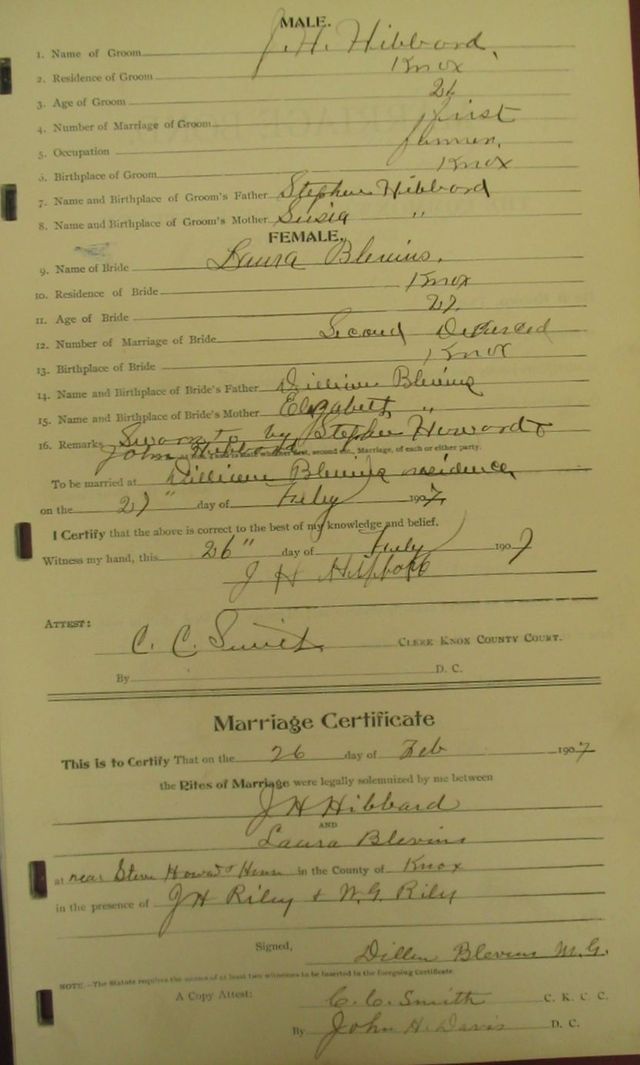 MALE.
1. Name of Groom J. H. Hibbard,
2. Residence of Groom Knox
3. Age of Groom 21
4. Number of Marriage of Groom first
5. Occupation farmer,
6. Birthplace of Groom Knox
7. Name and Birthplace of Groom's Father Stephen Hibbard
8. Name and Birthplace of Groom's Mother Susia "
FEMALE.
9. Name of Bride Laura Blevins.
10. Residence of Bride Knox
11. Age of Bride 27.
12. Number of Marriage of Bride Second Divorced
13. Birthplace of Bride Knox
14. Name and Birthplace of Bride's Father William Blevins
15. Name and Birthplace of Bride's Mother Elizabeth "
16. Remarks Sworn to by Stephen Howard &
John Hibbard first, second etc., Marriage, of each or either party.
To be married at William Blevins residence,
on the 27" day of Feby 1907.
I Certify that the above is correct to the best of my knowledge and belief.
Witness my hand, this 26" day of Feby 1907
J H Hibbard
ATTEST:
C. C. Smith CLERK KNOX COUNTY COURT.
By D. C.
Marriage Certificate
This is to Certify That on the 26 day of Feb 1907
the Rites of Marriage were legally solemnized by me between
J H Hibbard
AND
Laura Blevins
at near Steve Howard in the County of Knox
in the presence of J H Riley & W. G. Riley
Signed, Dillen Blevins M. G.
NOTE.—The Statute requires the names of at least two witnesses to be inserted in the foregoing Certificate.
A Copy Attest: C. C. Smith C. K. C. C.
By John H. Davis D. C.